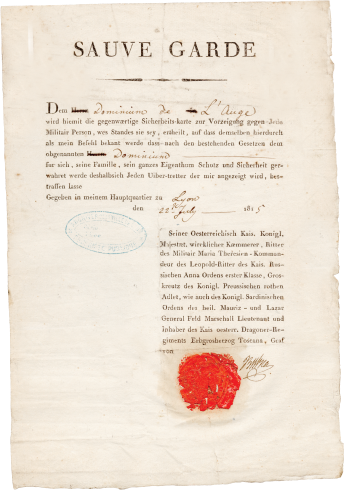 SAUVE GARDE
Dem Herrn Dominium de L'Auge
wird hiemit die gegenwærtige Sicherheits-karte zur Vorzeigung gegen Jede
Militair Person, wes Standes sie sey, ertheilt, auf dass demselben hierdurch
als mein Befehl bekant werde dass nach den bestehenden Gesetzen dem
obgenannten Dominium
für sich, seine Familie, sein ganzes Eigenthum Schutz und Sicherheit ge-
wæhret werde deshallsich Jeden Ueber-tretter der mir angezeigt wird, bes-
traffen lasse
Gegeben in meinem Hauptquartier zu Lyon
den 22ten July 1815
Seiner Oesterreichisch Kais. Konigl.
Majestæt, wircklicher Kæmmerer, Ritter
des Militair Maria Theresien-Komman-
deur des Leopold-Ritter des Kais. Rus-
sischen Anna Ordens erster Klasse, Gros-
kreutz des Konigl. Preussischen rothen
Adler, wie auch des Konigl. Sardinischen
Ordens des heil. Mauriz- und Lazar
General Feld Marschall Lieutenant und
Inhaber des Kais oesterr. Dragoner-Re-
giments Erbgrosherzog Toscana, Graf
von